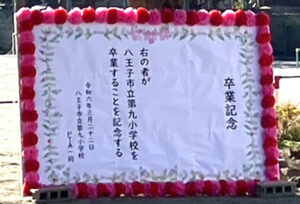 卒業記念
右の者が
八王子市立第九小学校を
卒業することを記念する
令和六年三月二十二日
八王子市立第九小学校
PTA一同